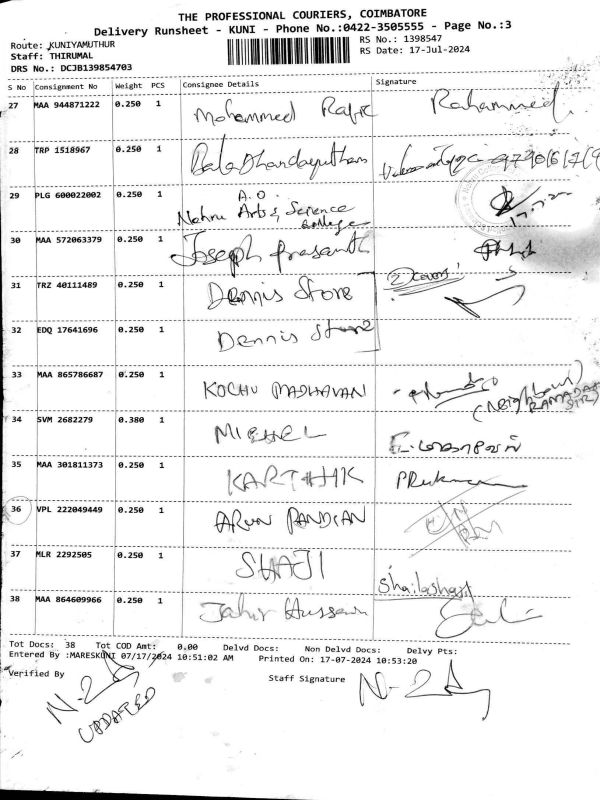 THE PROFESSIONAL COURIERS, COIMBATORE
Delivery Runsheet - KUNI - Phone No.:0422-3505555 - Page No.:3
Route: KUNIYAMUTHUR RS No.: 1398547
Staff: THIRUMAL RS Date: 17-Jul-2024
DRS No.: DCJB139854703
S No Consignment No Weight PCS Consignee Details Signature
27 MAA 944871222 0.250 1 Mohammed Rafic
28 TRP 1518967 0.250 1
29 PLG 600022002 0.250 1 A.O.
Nehru Arts, Science
College
30 MAA 572063379 0.250 1 Joseph Prasanth
31 TRZ 40111489 0.250 1 Dennis Store 2 Covers
32 EDQ 17641696 0.250 1 Dennis Store
33 MAA 865786687 0.250 1 KOCHU MADHAVAN
34 SVM 2682279 0.380 1 MICHEL
35 MAA 301811373 0.250 1 KARTHIK
36 VPL 222049449 0.250 1 ARUN PANDIAN
37 MLR 2292505 0.250 1 SHAJI Shailashaji
38 MAA 864609966 0.250 1 Jahir Hussain
Tot Docs: 38 Tot COD Amt: 0.00 Delvd Docs: Non Delvd Docs: Delvy Pts:
Entered By :MARESKUNI 07/17/2024 10:51:02 AM Printed On: 17-07-2024 10:53:20
Verified By Staff Signature
UPDATED